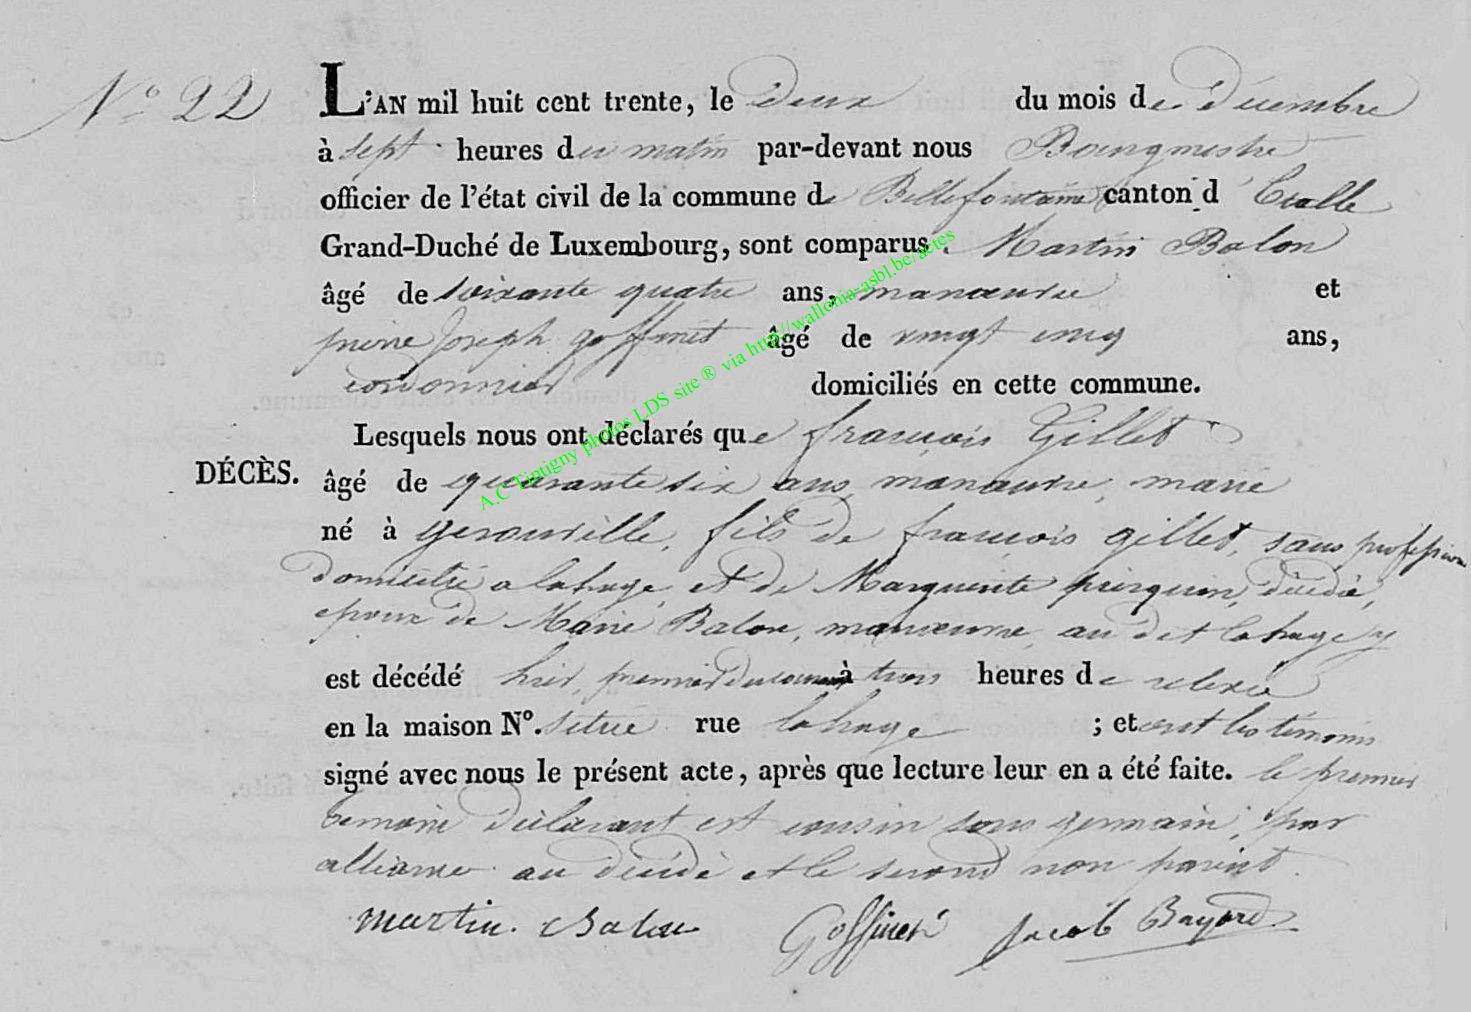 N° 22
L'AN mil huit cent trente, le deux du mois de décembre
à sept heures du matin par-devant nous Bourgmestre
officier de l'état civil de la commune de Bellefontaine canton d'Etalle
Grand-Duché de Luxembourg, sont comparus Martin Balon
âgé de soixante quatre ans, manœuvre et
pierre Joseph goffinet âgé de vingt cinq ans,
cordonnier domiciliés en cette commune.
Lesquels nous ont déclarés que françois Gillet
DÉCÈS. âgé de quarante six ans, manœuvre, marié
né à gerouville, fils de françois gillet, sans profession
domicilié a lahage, et de Marguerite pierquin, décédé,
epoux de Marie Balon, manœuvre, au dit lahage y
est décédé hier, premier du courant à trois heures de relevée
en la maison N°. située rue lahage ; et ont les témoins
signé avec nous le présent acte, après que lecture leur en a été faite. le premier
temoin déclarant est cousin sous germain, par
alliance au décédé et le second non parent.
martin Balon Goffinet Jacob Bayard
A.C Tintigny photos LDS site ® via http//wallonia-asbl.be/actes